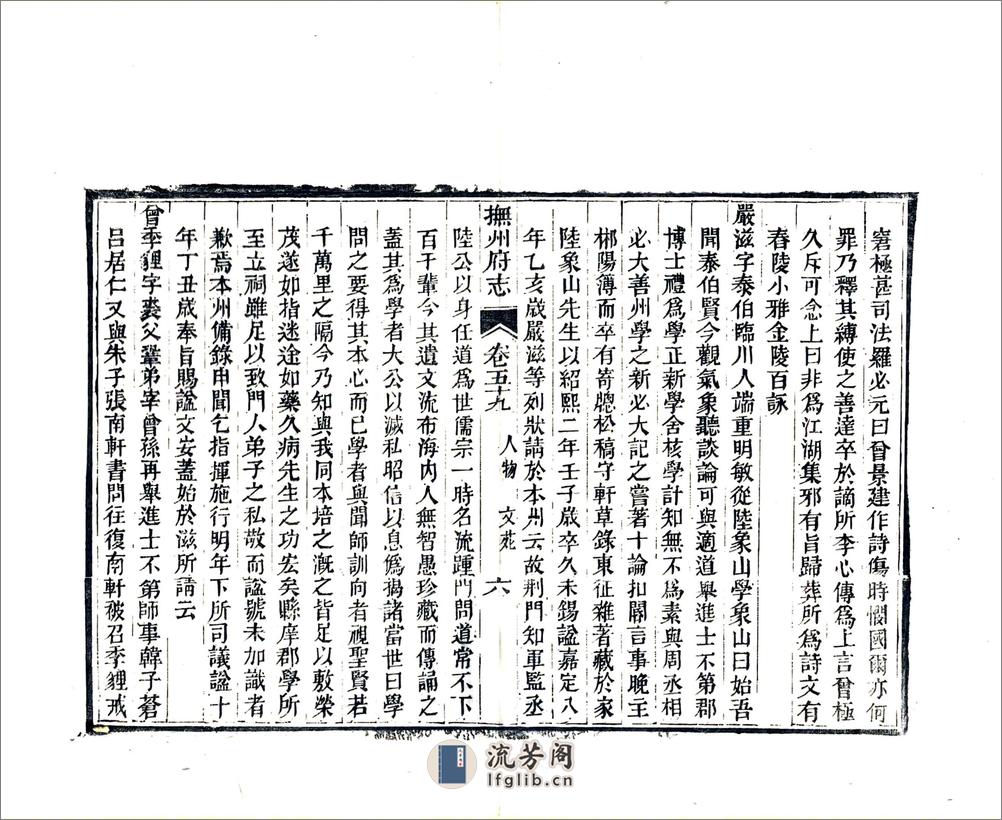 窘極甚司法羅必元曰曾景建作詩傷時憫國爾亦何
罪乃釋其縛使之善達卒於謫所李心傳爲上言曾極
久斥可念上曰非爲江湖集邪有旨歸葬所爲詩文有
舂陵小雅金陵百詠
嚴滋字泰伯臨川人端重明敏從陸象山學象山曰始吾
聞泰伯賢今觀氣象聽談論可與適道舉進士不第郡
博士禮爲學正新學舍核學計知無不爲素與周丞相
必大善州學之新必大記之嘗著十論扣閽言事晚主
郴陽簿而卒有寄牕松稿守軒草錄東征雜著藏於家
陸象山先生以紹熙二年壬子歲卒久未錫謚嘉定八
年乙亥歲嚴滋等列狀請於本州云故荆門知軍監丞
撫州府志 卷五十九 人物 文苑 六
陸公以身任道爲世儒宗一時名流踵門問道常不下
百千輩今其遺文流布海內人無智愚珍藏而傳誦之
蓋其爲學者大公以滅私昭信以息僞揭諸當世曰學
問之要得其本心而已學者與聞師訓向者視聖賢若
千萬里之隔今乃知與我同本培之漑之皆足以敷榮
茂遂如指迷途如藥久病先生之功宏矣縣庠郡學所
至立祠雖足以致門人弟子之私敬而謚號未加識者
歉焉本州備錄申聞乞指揮施行明年下所司議謚十
年丁丑歲奉旨賜謚文安蓋始於滋所請云
曾季貍字裘父鞏弟宰曾孫再舉進士不第師事韓子蒼
呂居仁又與朱子張南軒書問往復南軒被召季貍戒
流芳阁
lfglib.cn